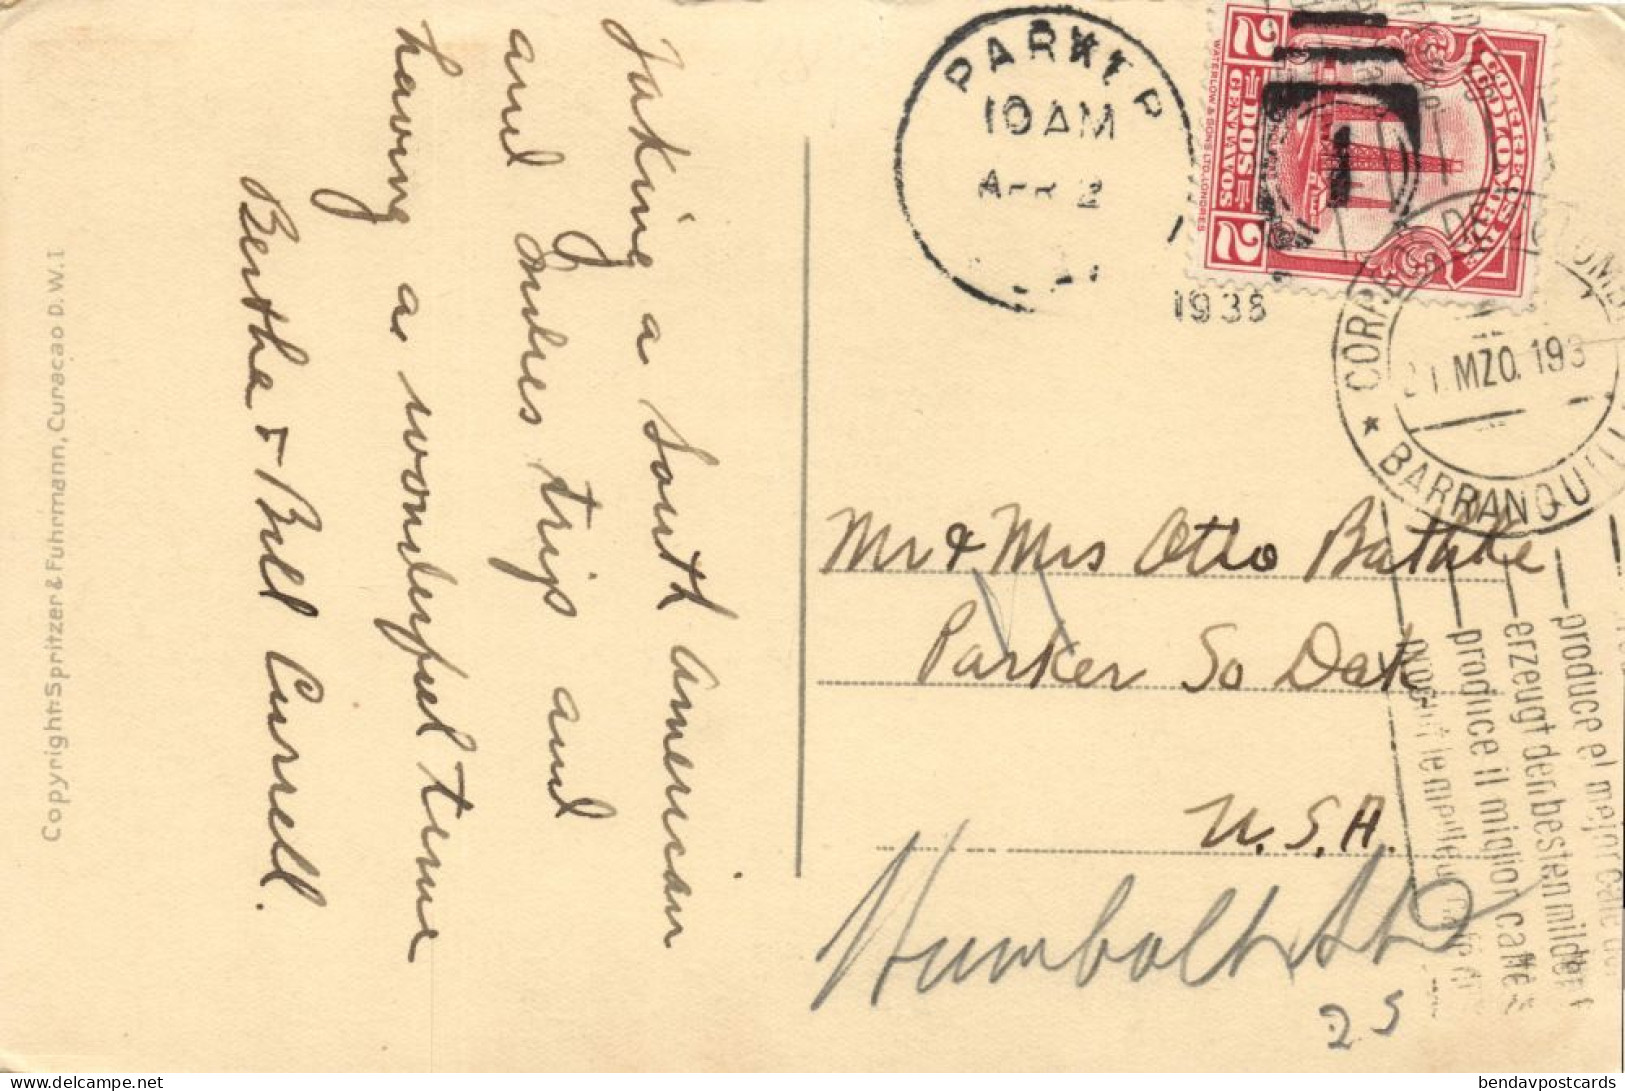 Taking a South American
and Indies trips and
having a wonderful time
Bertha & Bill Curnell.
Copyright: Spritzer & Fuhrmann, Curaçao D.W.I
PARKER
10 AM
APR 2
1938
CORREOS DE COLOMBIA
2 CENTAVOS 2
DOS
WATERLOW & SONS LTD. LONDRES
CORREOS DE COLOMBIA
21 MZO. 193
* BARRANQUILLA
Mr & Mrs Otto
Parker So Dak
U.S.A.
Humbolt
25
produce el mejor café
erzeugt den besten milden
produce il miglior caffé
bendavpostcards
www.delcampe.net